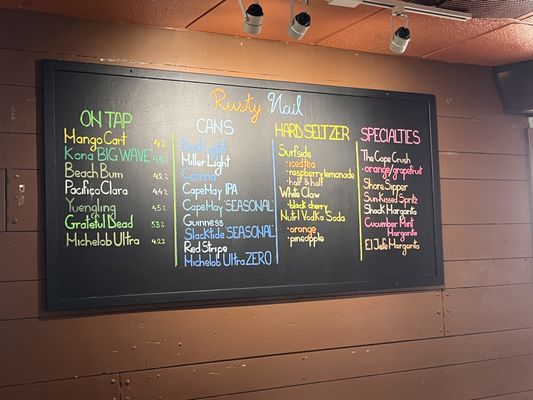 Rusty Nail
ON TAP
Mango Cart 4%
Kona BIG WAVE 4.4%
Beach Bum 4.2
Pacifico Clara 4.4%
Yuengling 4.5%
Grateful Dead 5.3%
Michelob Ultra 4.2
CANS
Bud Light
Miller Light
Corona
Cape May IPA
Cape May "SEASONAL"
Guinness
Slacktide "SEASONAL"
Red Stripe
Michelob Ultra ZERO
HARD SELTZER
Surfside
• iced tea
• raspberry lemonade
• half & half
White Claw
• black cherry
Nutrl Vodka Soda
• orange
• pineapple
SPECIALTIES
The Cape Crush
• orange/grapefruit
Shore Sipper
Sun-Kissed Spritz
Shack Margarita
Cucumber Mint
Margarita
El Jefe Margarita